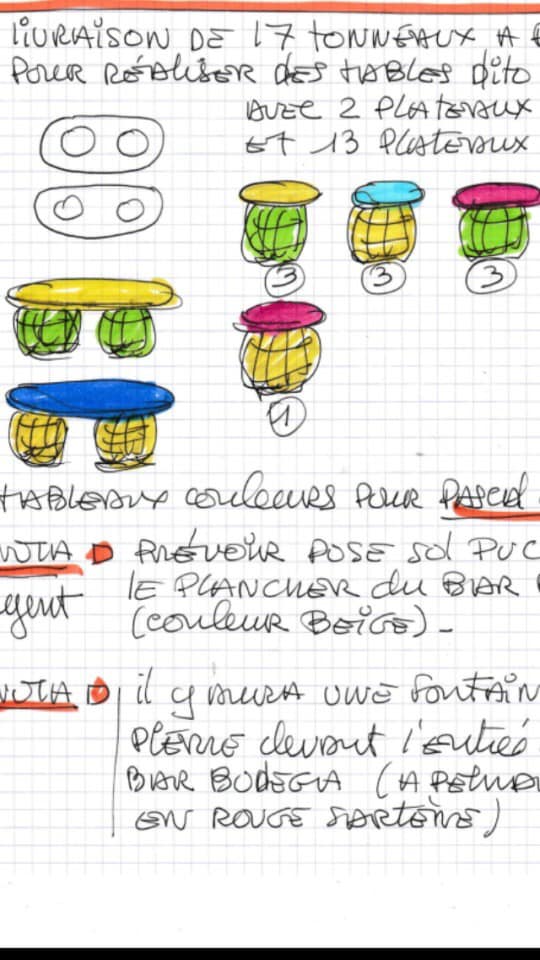 LIVRAISON DE 17 TONNEAUX A
POUR RÉALISER DES TABLES DITO
AVEC 2 PLATEAUX
ET 13 PLATEAUX
3 3 3
1
TABLEAUX COULEURS POUR PASCAL
NOTA PRÉVOIR POSE SOL PVC
LE PLANCHER DU BAR
(COULEUR BEIGE) -
NOTA il y AURA UNE FONTAIN
PIERRE devant l'entrée
BAR BODEGA (A
EN ROUGE SARTÈNE)